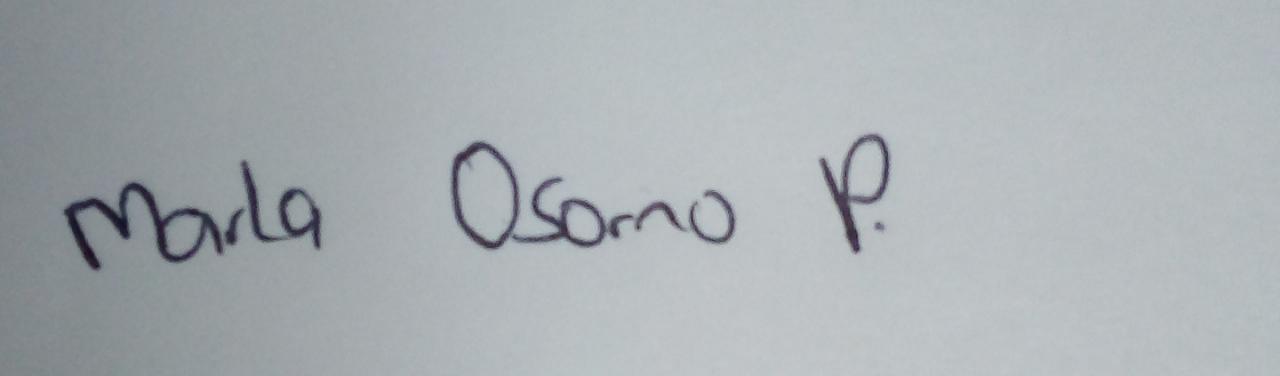 Marla Osorno P.